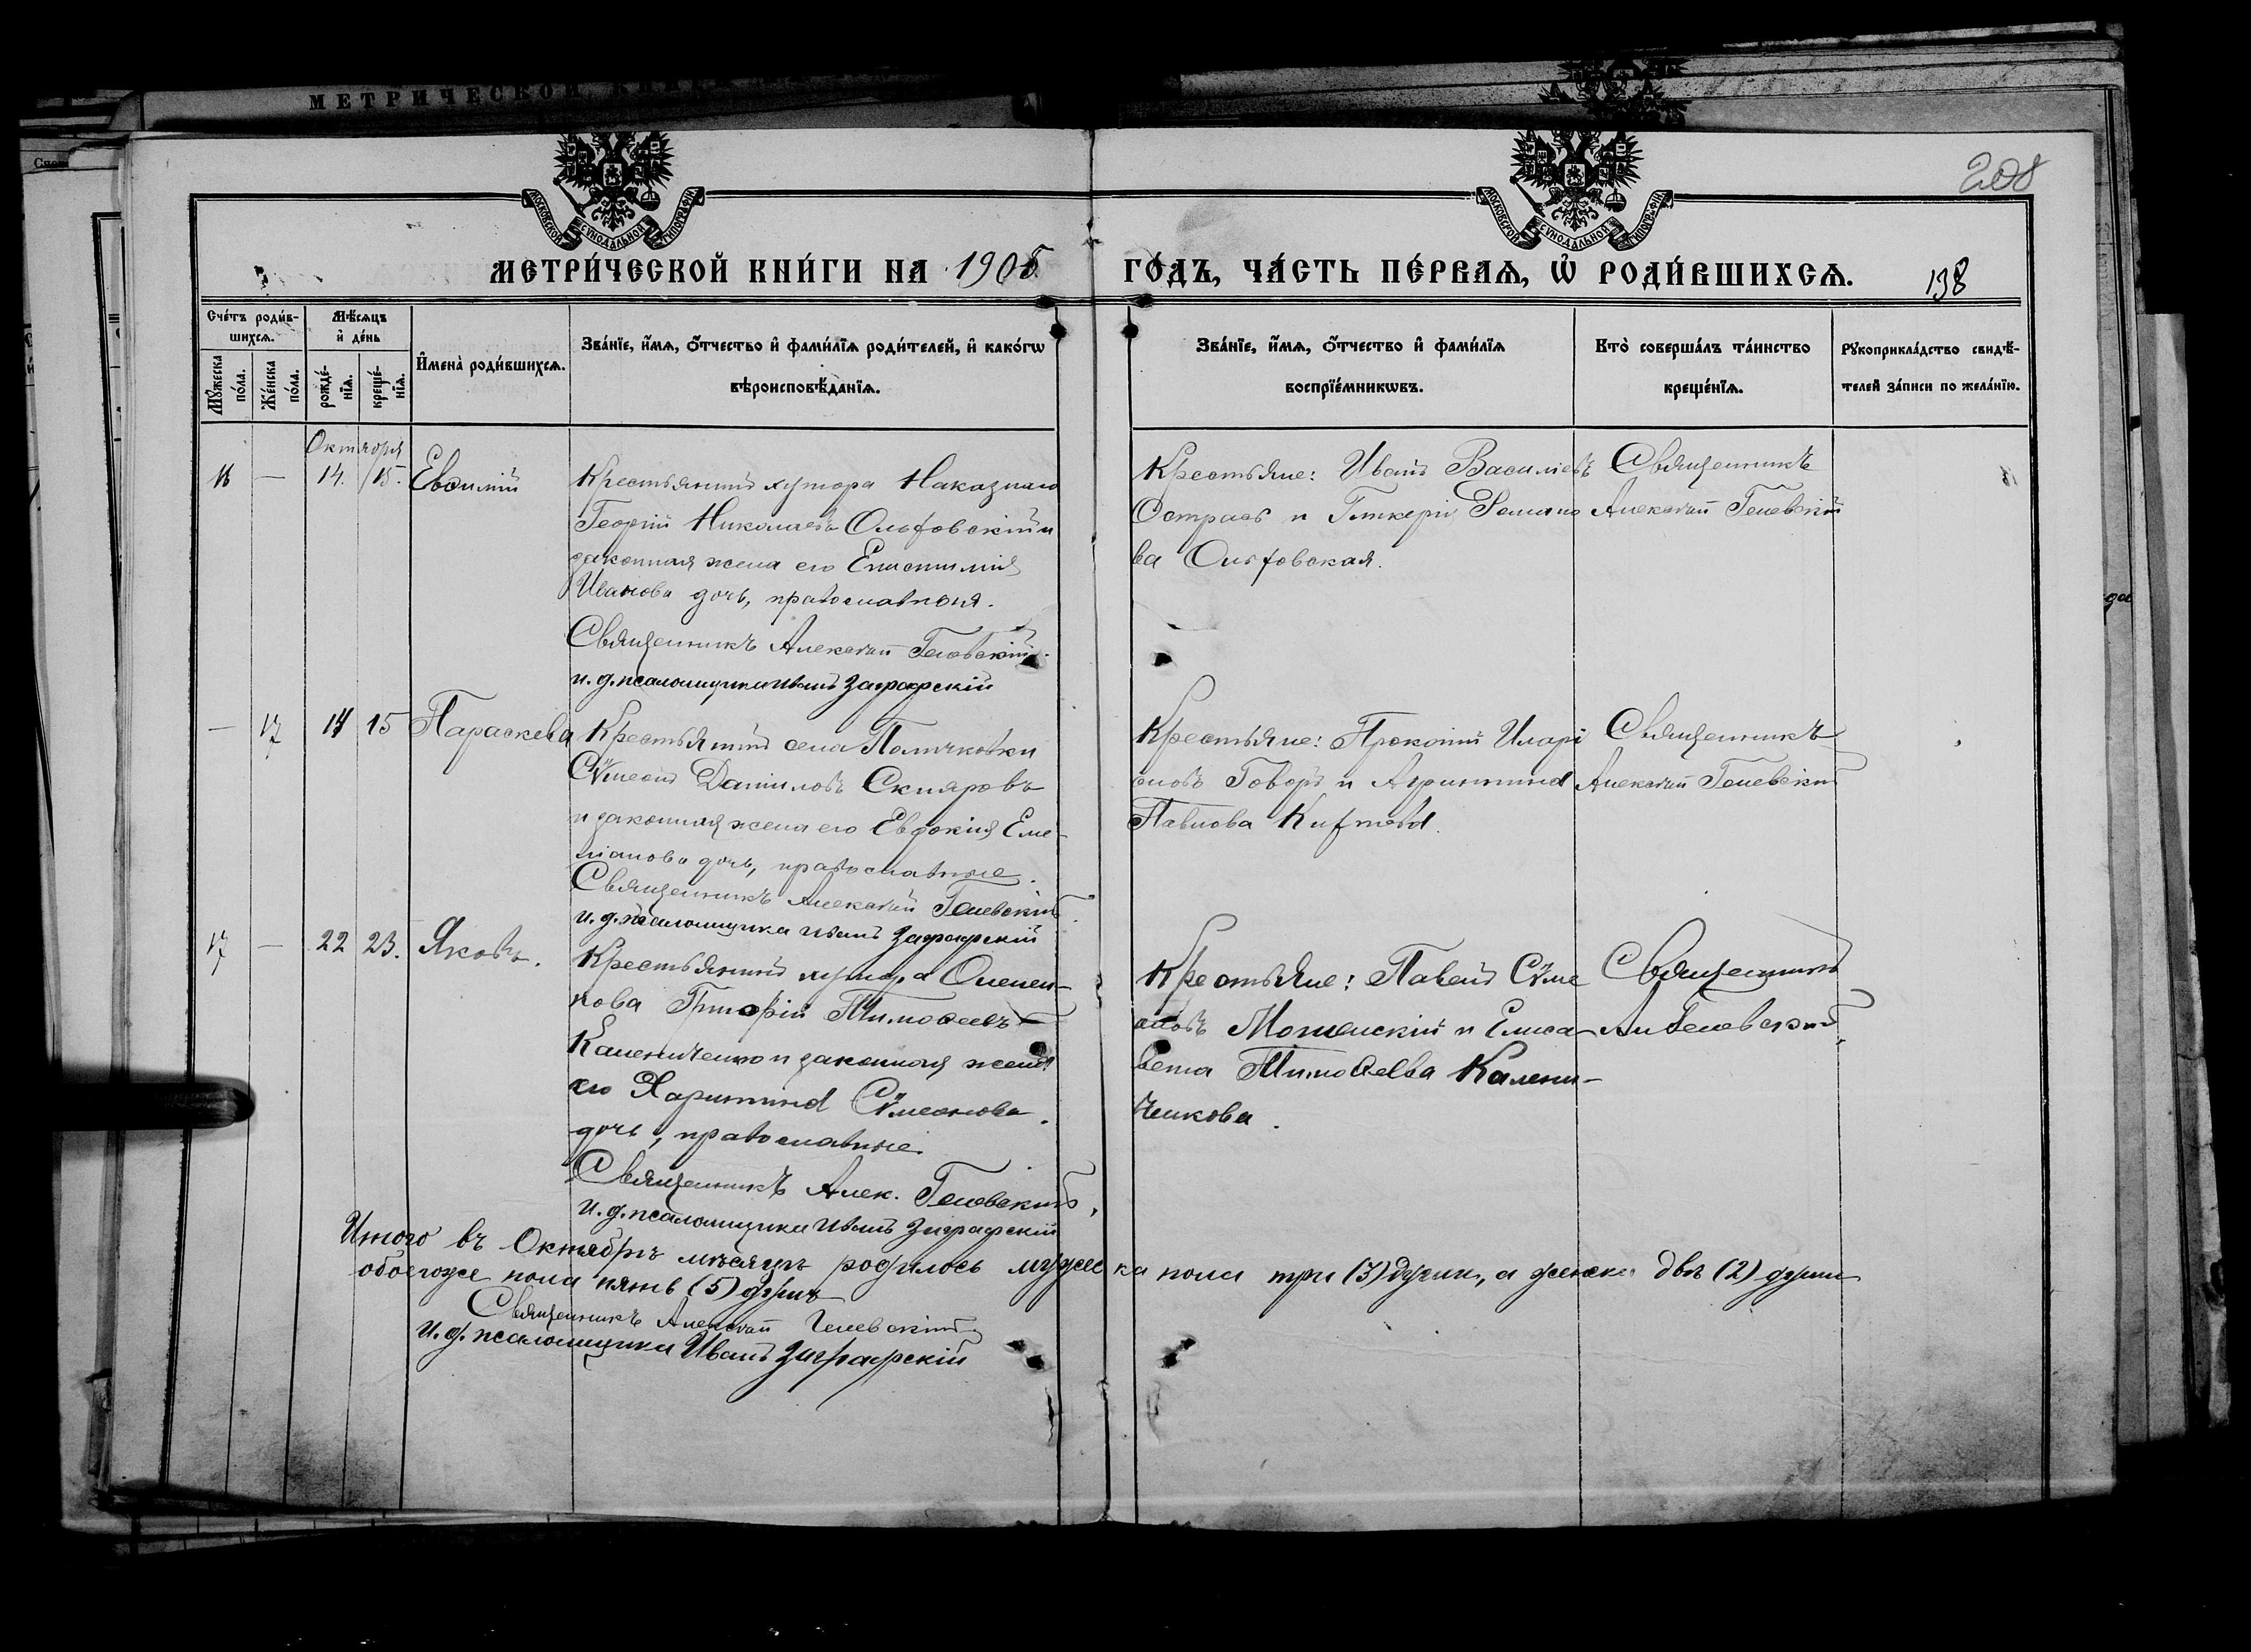 МЕТРИЧЕСКОЙ
208
МОСКОВСКОЙ СѴНОДАЛЬНОЙ ТИПОГРАФІИ
МОСКОВСКОЙ СѴНОДАЛЬНОЙ ТИПОГРАФІИ
МЕТРИ́ЧЕСКОЙ КНИ́ГИ НА 1905
ГО́ДЪ, ЧА́СТЬ ПЕ́РВАѦ, Ѡ҆ РОДИ́ВШИХСѦ.
198
Сче́тъ роди́в-
шихсѧ.
Мꙋ́жеска по́ла.
Же́нска по́ла.
Мѣ́сѧцъ
и҆ де́нь
рожде́-
нїѧ.
креще́-
нїѧ.
И҆мена̀ роди́вшихсѧ.
Зва́нїе, и҆́мѧ, ѻ҆́тчество и҆ фами́лїѧ роди́телей, и҆ како́гѡ
вѣроисповѣ́данїѧ.
Зва́нїе, и҆́мѧ, ѻ҆́тчество и҆ фами́лїѧ
воспрїе́мникѡвъ.
Кто̀ соверша́лъ та́инство
креще́нїѧ.
Рꙋкоприкла́дство свидѣ́-
телей за́писи по жела́нїю.
Октября
16 — 14. 15. Евѳимій
Крестьянинъ хутора Наказнаго
Георгій Николаевъ Ольховскій и
законная жена его Епистимія
Иванова дочь, православныя.
Священникъ Алексѣй Гелевскій.
и. д. псаломщика Иванъ Заграфскій
Крестьяне: Иванъ Васильевъ
Остра и Гликерія
ва Ольховская.
Священникъ
Алексѣй Гелевскій
— 17 14 15 Параскева
Крестьянинъ села Поличковки
Сѵмеонъ Даниловъ Скляровъ
и законная жена его Евдокія Еме-
ліанова дочь, православные.
Священникъ Алексѣй Гелевскій.
и. д. псаломщика Иванъ Заграфскій
Крестьяне: Прокопій Иларі
оновъ Говоръ и Агрипина
Павлова
Священникъ
Алексѣй Гелевскій
17 — 22 23. Яковъ.
Крестьянинъ хутора Олемен-
кова Григорій Тимоѳеевъ
Калениченко и законная жена
его Харитина Сѵмеонова
дочь, православные.
Священникъ Алек. Гелевскій,
и. д. псаломщика Иванъ Заграфскій
Крестьяне: Павелъ Сѵме
оновъ и Елиса-
вета Тимоѳеева Калени-
ченкова.
Священникъ
Ал Гелевскій
Итого въ Октябрѣ мѣсяцѣ родилось мужеска пола три (3) души, а женска двѣ (2) души
обоегоже пола пять (5) душъ
Священникъ Алексѣй Гелевскій
и. д. псаломщика Иванъ Заграфскій